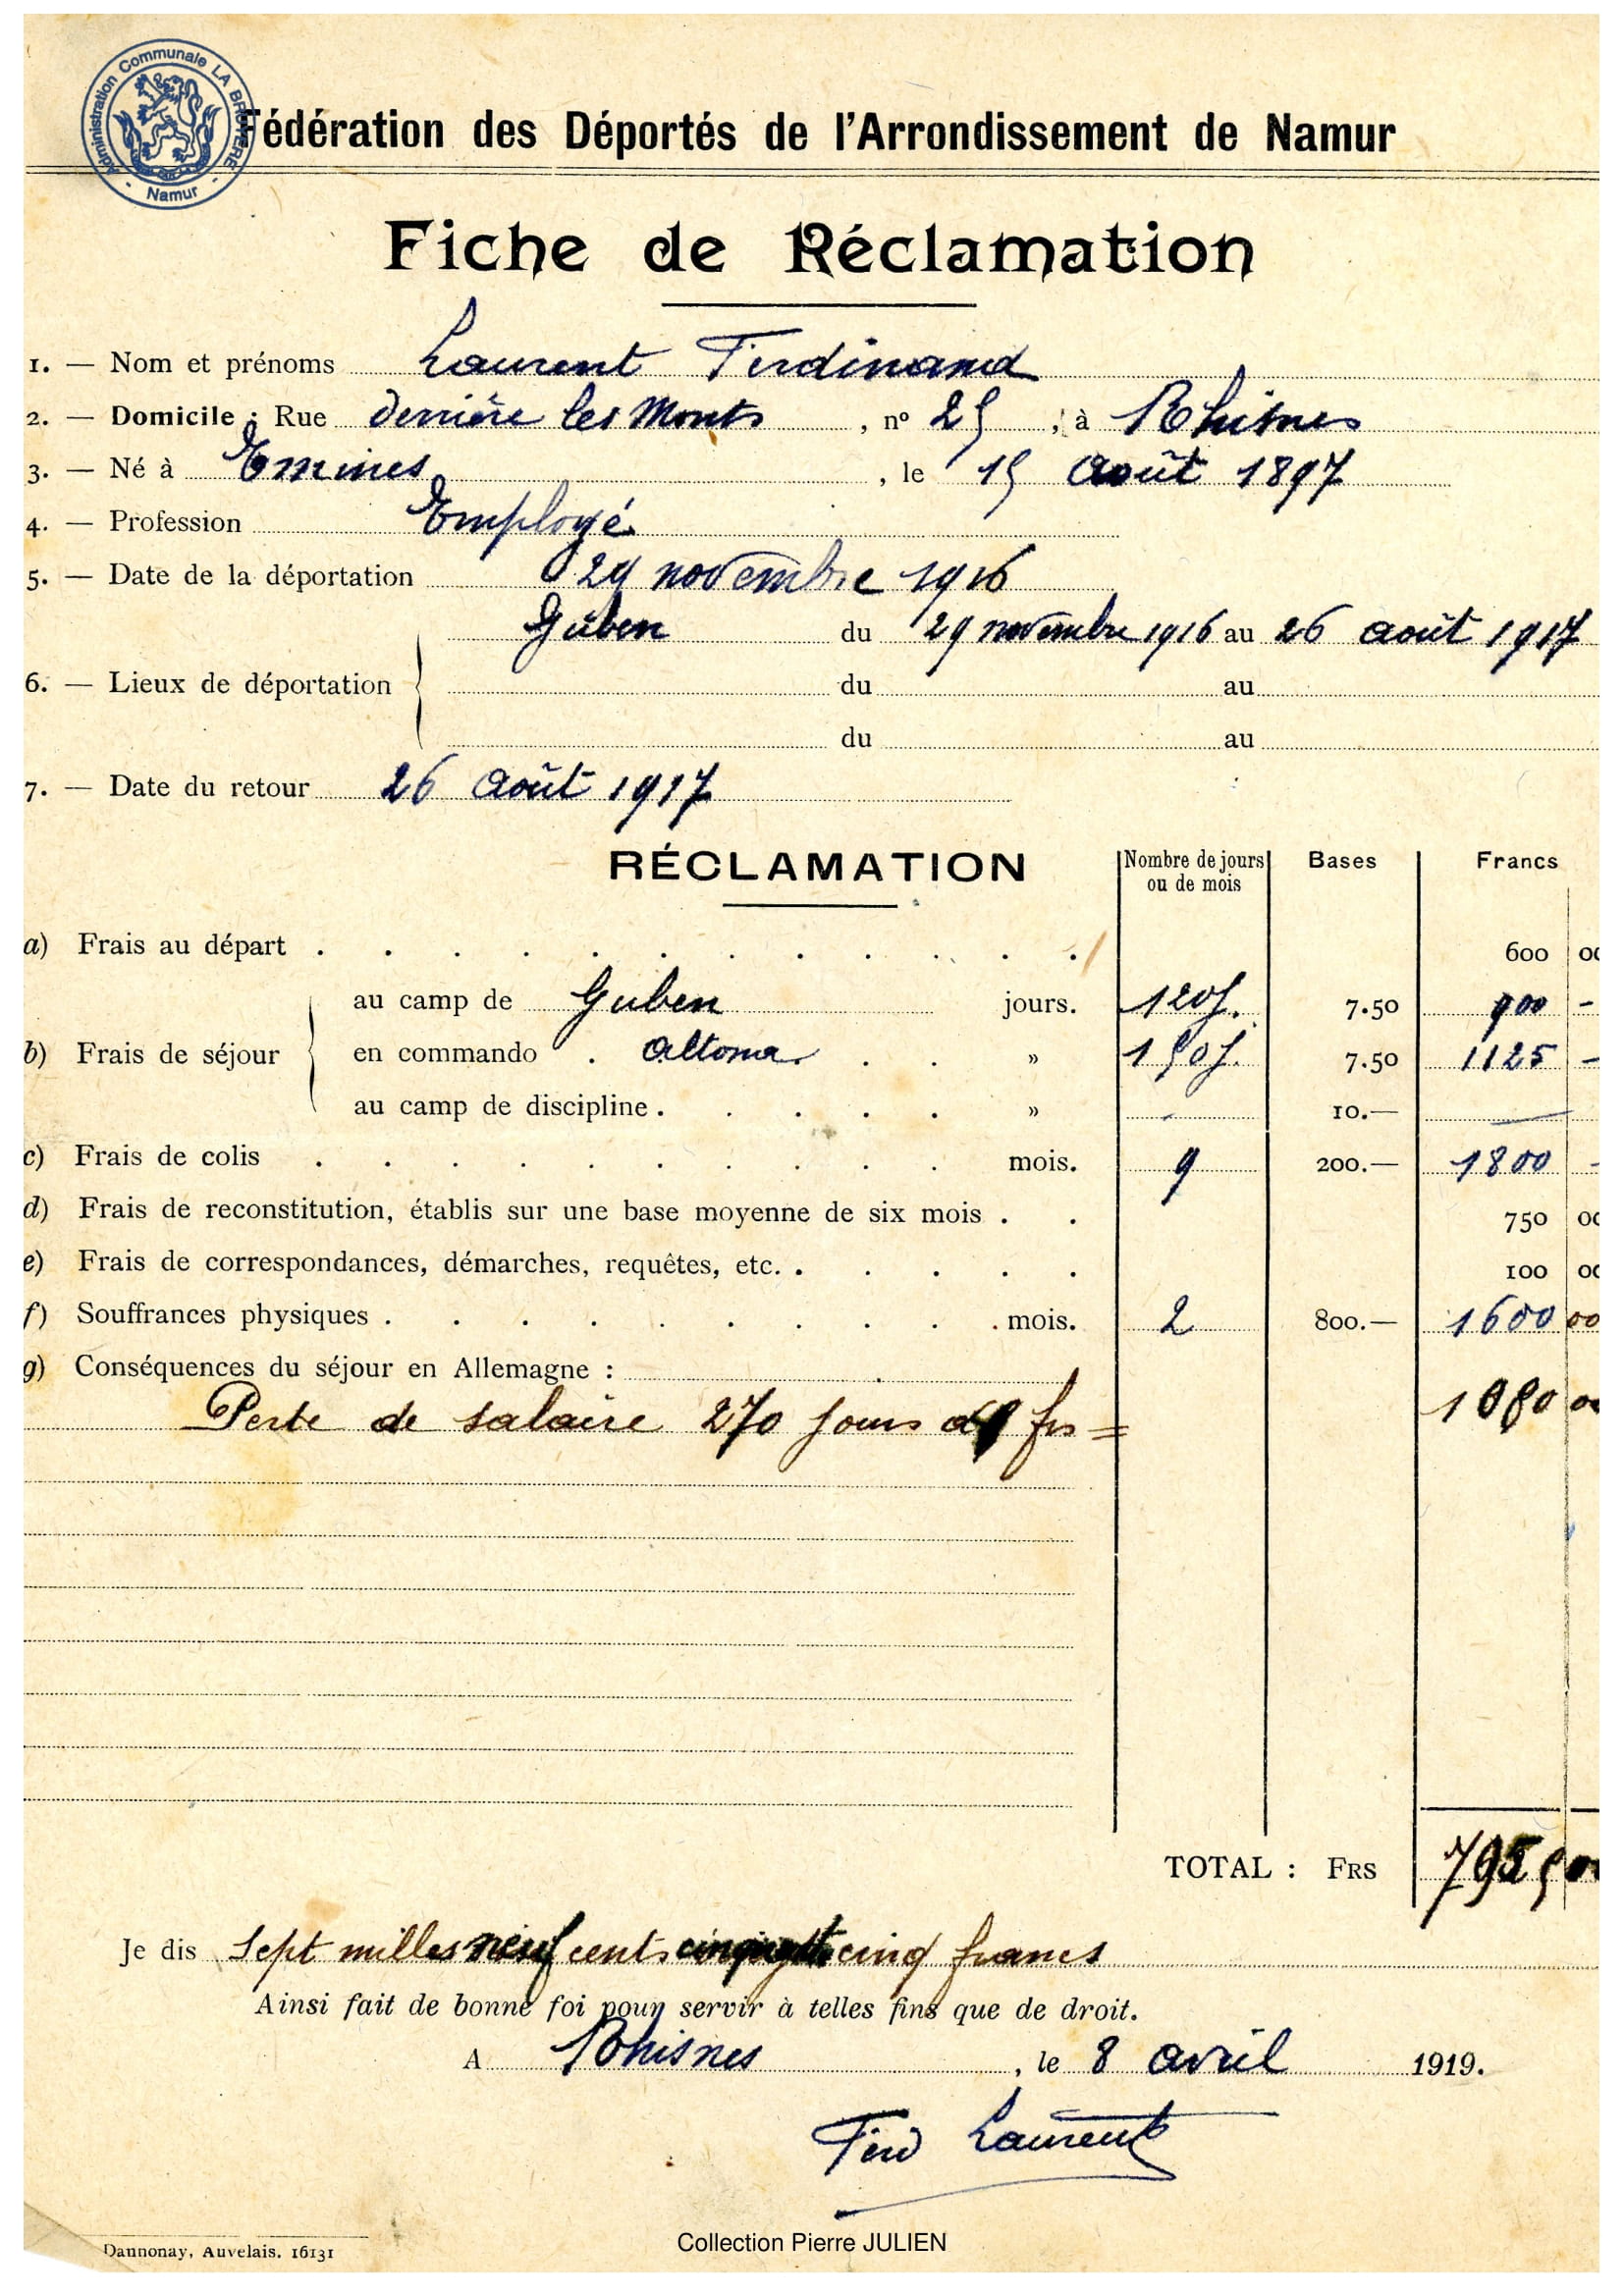 Administration Communale LA BRUYERE
- Namur -
Fédération des Déportés de l'Arrondissement de Namur
Fiche de Réclamation
1. — Nom et prénoms Laurent Ferdinand
2. — Domicile : Rue derrière les Monts , nº 25 , à Rhisnes
3. — Né à Emines , le 15 août 1897
4. — Profession Employé
5. — Date de la déportation 29 novembre 1916
Guben du 29 novembre 1916 au 26 août 1917
6. — Lieux de déportation du au
du au
7. — Date du retour 26 août 1917
RÉCLAMATION Nombre de jours ou de mois Bases Francs
a) Frais au départ 600 00
au camp de Guben jours. 120 j. 7.50 900 -
b) Frais de séjour en commando Altona » 150 j. 7.50 1125 -
au camp de discipline » - 10.— —
c) Frais de colis mois. 9 200.— 1800 -
d) Frais de reconstitution, établis sur une base moyenne de six mois 750 00
e) Frais de correspondances, démarches, requêtes, etc. 100 00
f) Souffrances physiques mois. 2 800.— 1600 00
g) Conséquences du séjour en Allemagne :
Perte de salaire 270 jours à frs = 1080 00
TOTAL : FRS 7955 00
Je dis sept milles neuf cents cinquante cinq francs
Ainsi fait de bonne foi pour servir à telles fins que de droit.
A Rhisnes , le 8 avril 1919.
Ferd Laurent
Dannonay, Auvelais. 16131
Collection Pierre JULIEN